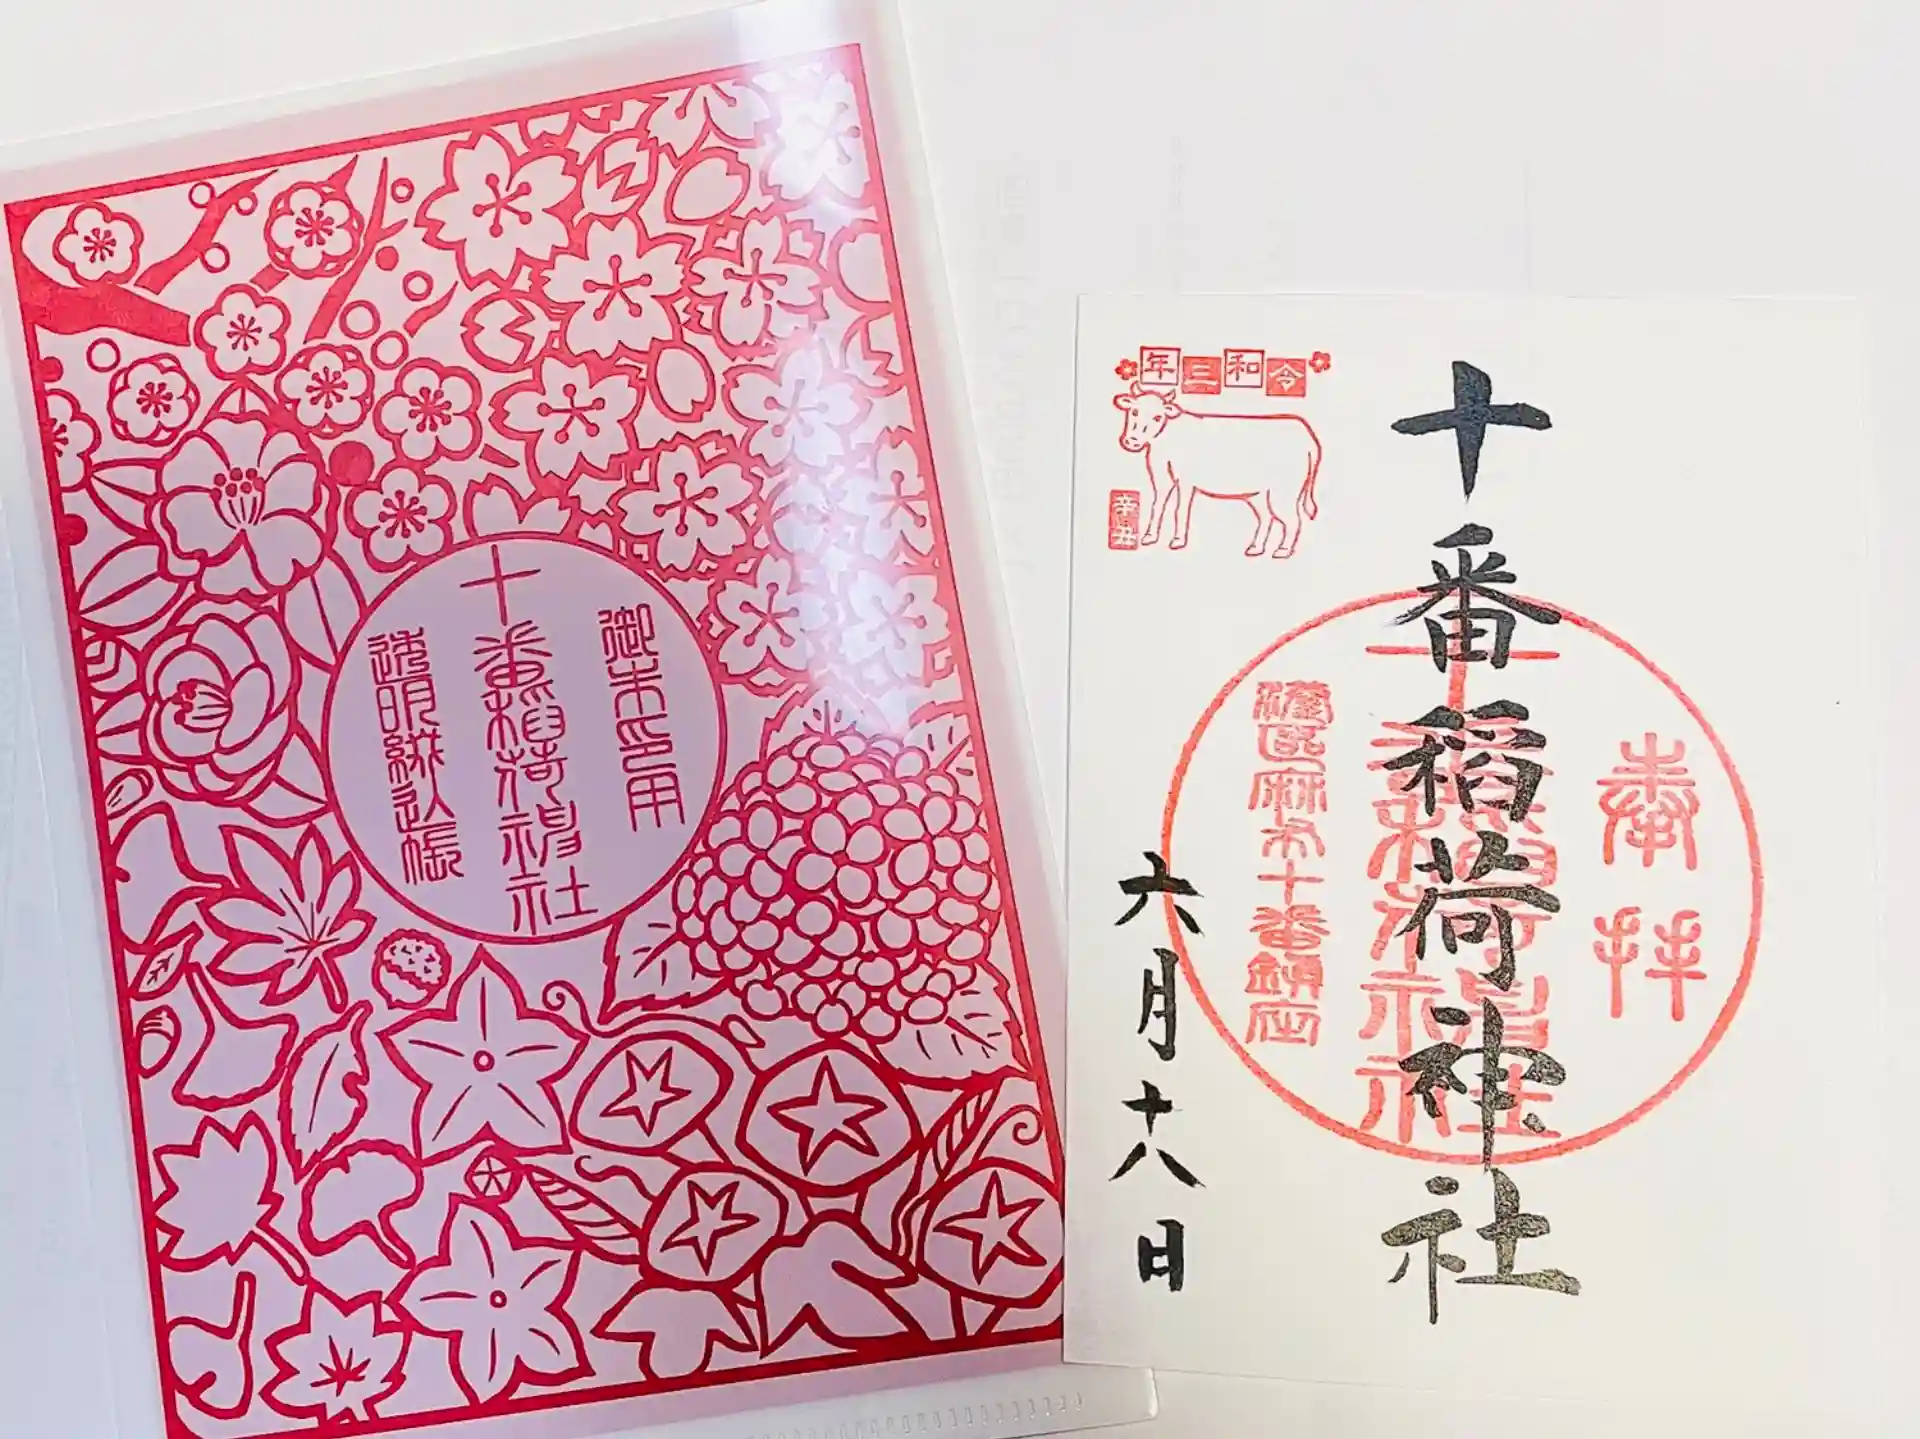 御朱印用
十番稲荷神社
透明綴込帳
令和三年
辛丑
奉拝
十番稲荷神社
十番稲荷神社
港区麻布十番鎮座
六月十八日